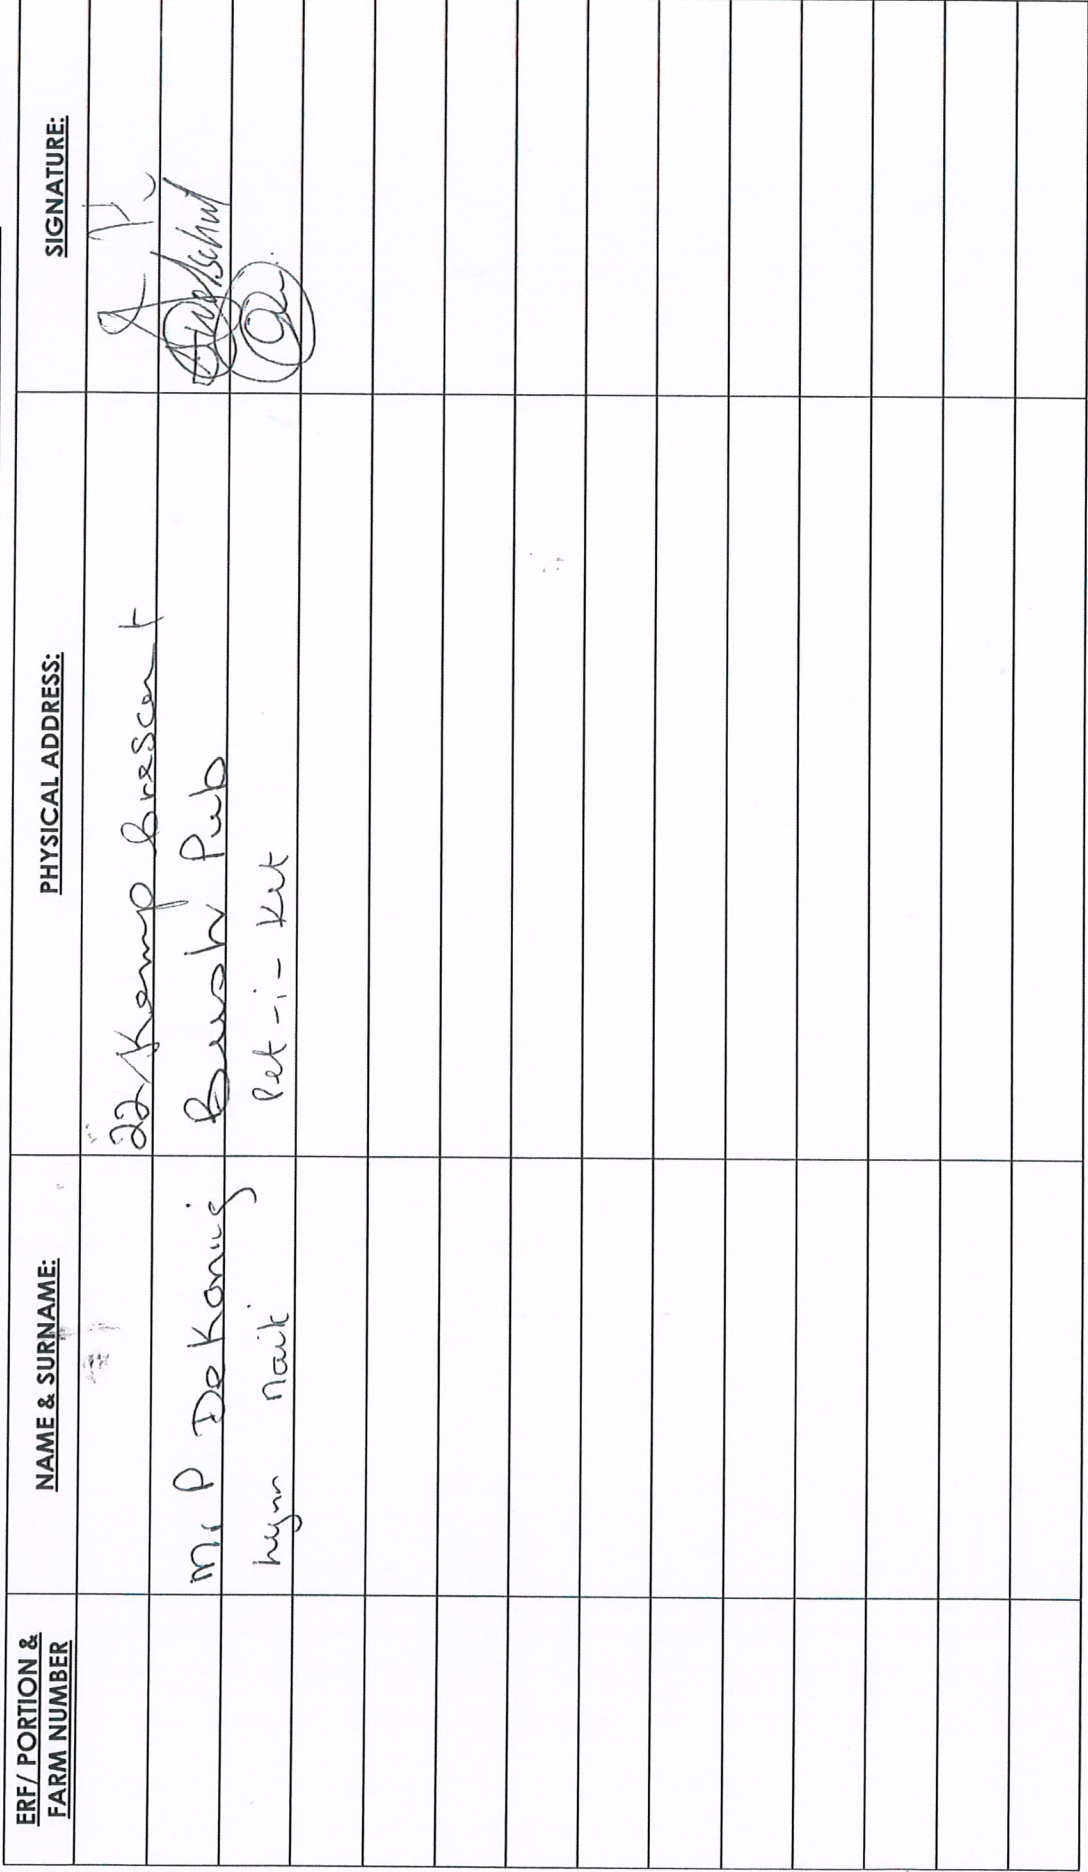 ERF/ PORTION & FARM NUMBER NAME & SURNAME: PHYSICAL ADDRESS: SIGNATURE:
22 Kemp Crescent
Mr P De Koning Bush Pub
Lynn Naik Pet-i-Ket